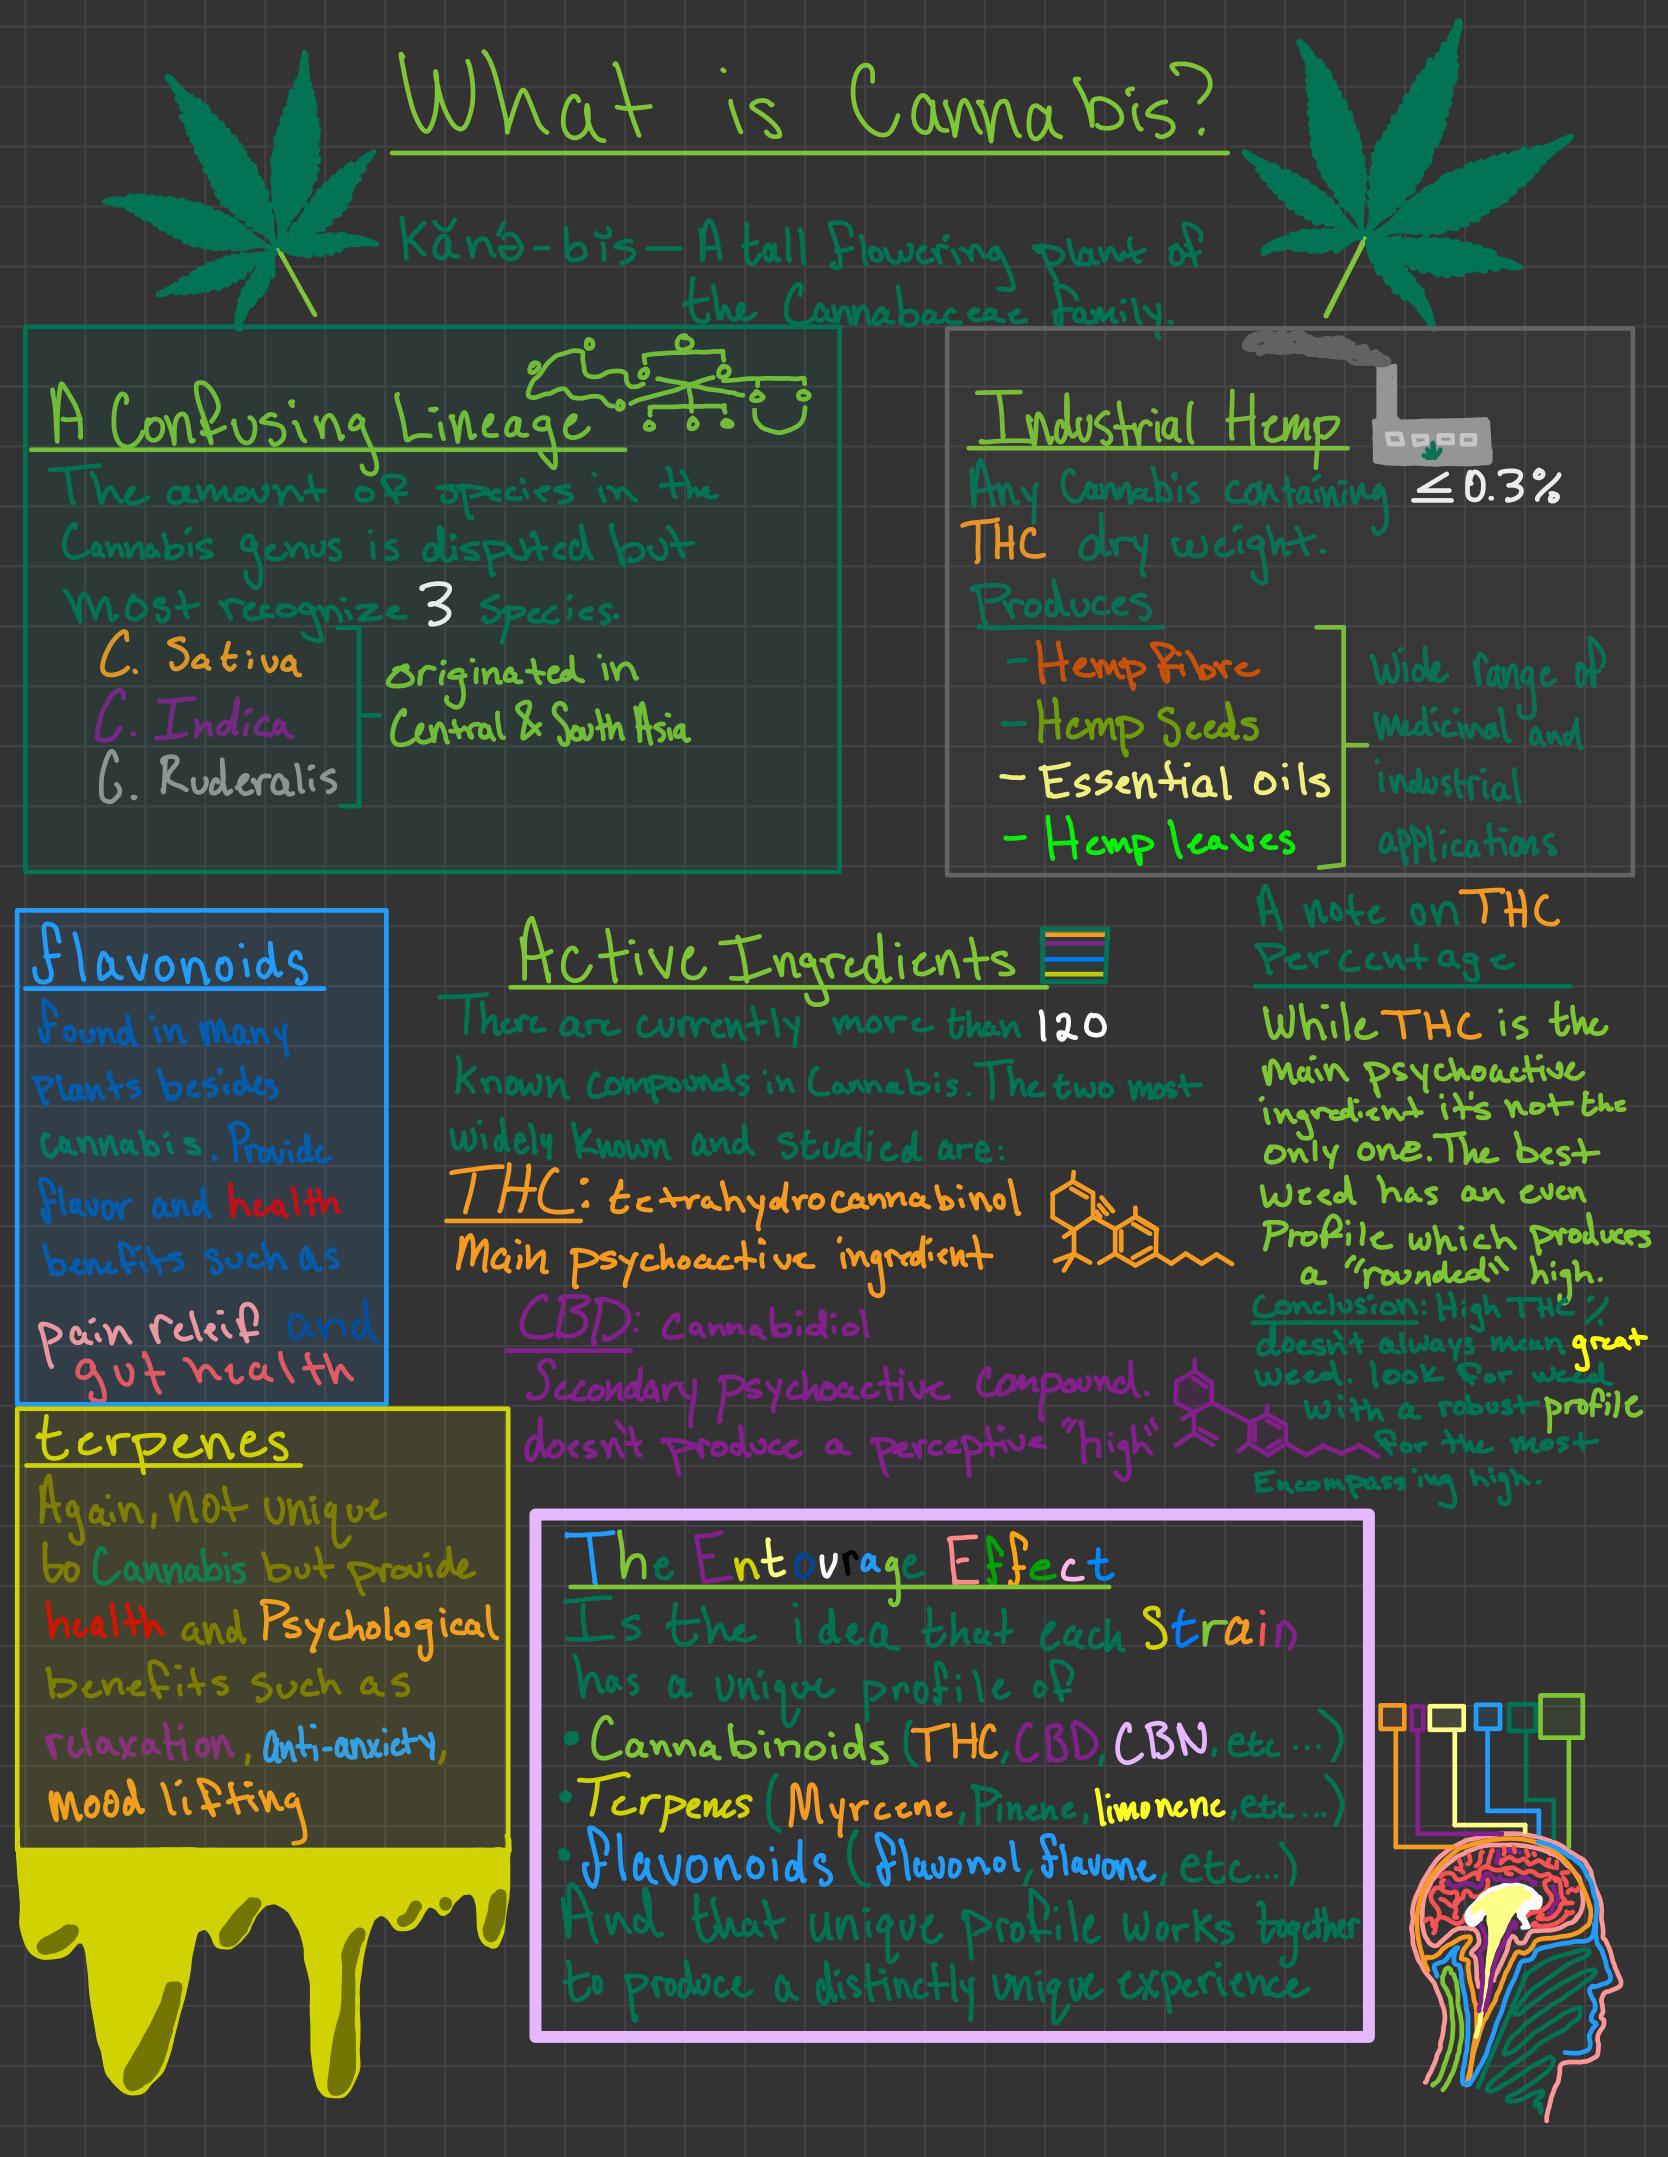 What is Cannabis?
Kănə-bĭs — A tall flowering plant of
the Cannabaceae family.
A Confusing Lineage
The amount of species in the
Cannabis genus is disputed but
most recognize 3 species.
C. Sativa
C. Indica
C. Ruderalis
originated in
Central & South Asia
Industrial Hemp
Any Cannabis containing ≤0.3%
THC dry weight.
Produces
- Hemp fibre
- Hemp Seeds
- Essential oils
- Hemp leaves
Wide range of
medicinal and
industrial
applications
flavonoids
found in many
plants besides
cannabis. Provide
flavor and health
benefits such as
pain releif and
gut health
Active Ingredients
There are currently more than 120
known compounds in Cannabis. The two most
widely known and studied are:
THC: tetrahydrocannabinol
Main psychoactive ingredient
CBD: cannabidiol
Secondary psychoactive compound.
doesn't produce a perceptive "high"
A note on THC
Percentage
While THC is the
main psychoactive
ingredient it's not the
only one. The best
weed has an even
Profile which produces
a "rounded" high.
Conclusion: High THC %
doesn't always mean great
weed. look for weed
with a robust profile
for the most
Encompassing high.
terpenes
Again, not unique
to Cannabis but provide
health and Psychological
benefits such as
relaxation, anti-anxiety,
mood lifting
The Entourage Effect
Is the idea that each Strain
has a unique profile of
• Cannabinoids (THC, CBD, CBN, etc...)
• Terpenes (Myrcene, Pinene, limonene, etc...)
• flavonoids (flavonol, flavone, etc...)
And that unique profile works together
to produce a distinctly unique experience